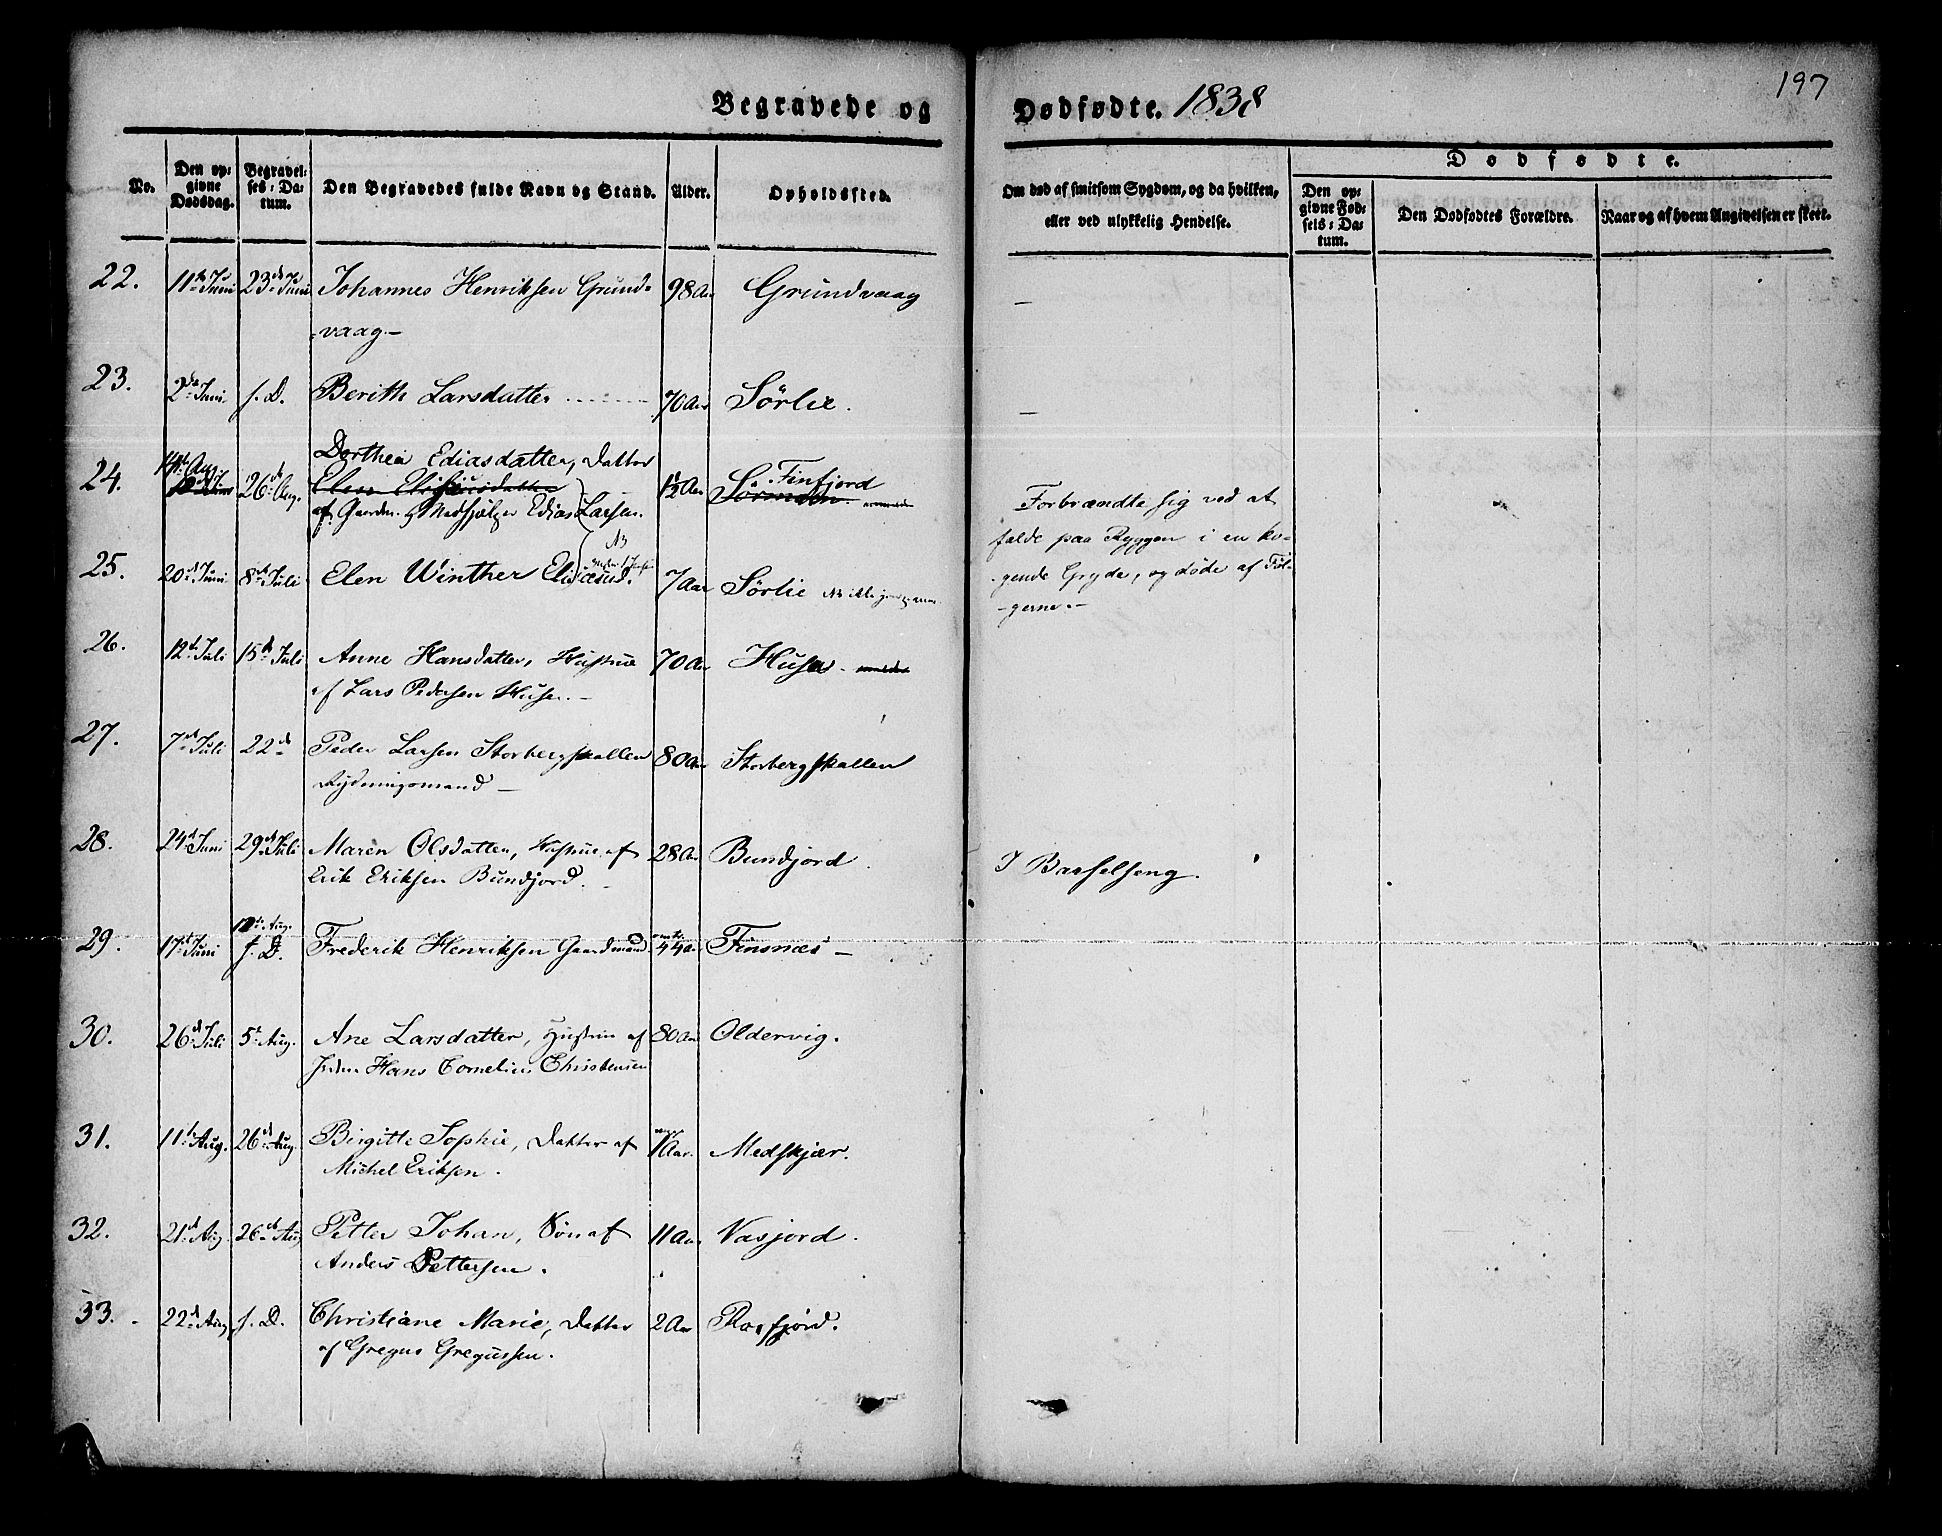 197
Begravede og Dødfødte. 1838
No.
Den opgivne Dødsdag.
Begravelses-Datum.
Den Begravedes fulde Navn og Stand.
Alder.
Opholdssted.
Om død af smitsom Sygdom, og da hvilken, eller ved ulykkelig Hendelse.
Dødfødte.
Den opgivne Fødsels-Datum.
Den Dødfødtes Forældre.
Naar og af hvem Angivelsen er skeet.
22. 11te Juni 23de Juni Johannes Henriksen Grund- 98 Aar Grundvaag —
vaag.—
23. 2de Juni s. D. Berith Larsdatter 70 Aar Sörlie. —
24. 14de Aug 26de Aug. Dorthea Ediasdatter, Datter 1½ Aar S. Finfjord
af Gaardm. & Medhjælper Edias Larsen.
Forbrændte sig ved at
falde paa Ryggen i en ko-
gende Gryde, og døde af Föl-
gerne.—
25. 20de Juni 8de Juli Elen Winther Elisæusd. 7 Aar Sörlie
26. 12te Juli 15de Juli Anne Hansdatter, Hustrue 70 Aar Husa
af Lars Pedersen Husen.—
27. 7de Juli 22de Peder Larsen Storbergskallen 80 Aar Storbergskallen
Rydningsmand —
28. 24de Juni 29de Juli Maren Olsdatter, Hustrue af 28 Aar Bundjord I Barselseng.
Erik Eriksen Bundjord.
29. 17de Juni 12te Aug. s. D. Frederik Henriksen Gaardmand 44 Aar Finsnæs —
30. 26de Juli 5te Aug. Ane Larsdatter, Hustrue af 80 Aar Oldervig.
Hans Cornelius Christensen
31. 11te Aug. 26de Aug. Birgitte Sophie, Datter af 1 Aar. Medskjær.
Michel Eriksen.
32. 21de Aug. 26de Aug Petter Johan, Sön af 11 Aar Vasjord.
Anders Pettersen.
33. 22de Aug s. D. Christiane Marie, Datter 2 Aar Rosfjord.
af Gregus Gregussen.